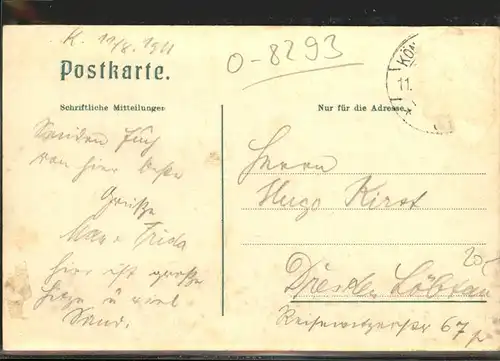 K. 11/8. 1911
O-8293
Postkarte.
KÖ
11.
Schriftliche Mitteilungen
Nur für die Adresse.
Senden Euch
von hier beste
Grüße
Max u. Frida
hier ist große
Hitze u viel
Sand.
Herrn
Hugo Kirst
20-
Dresden Löbtau
Reisewitzerstr 67